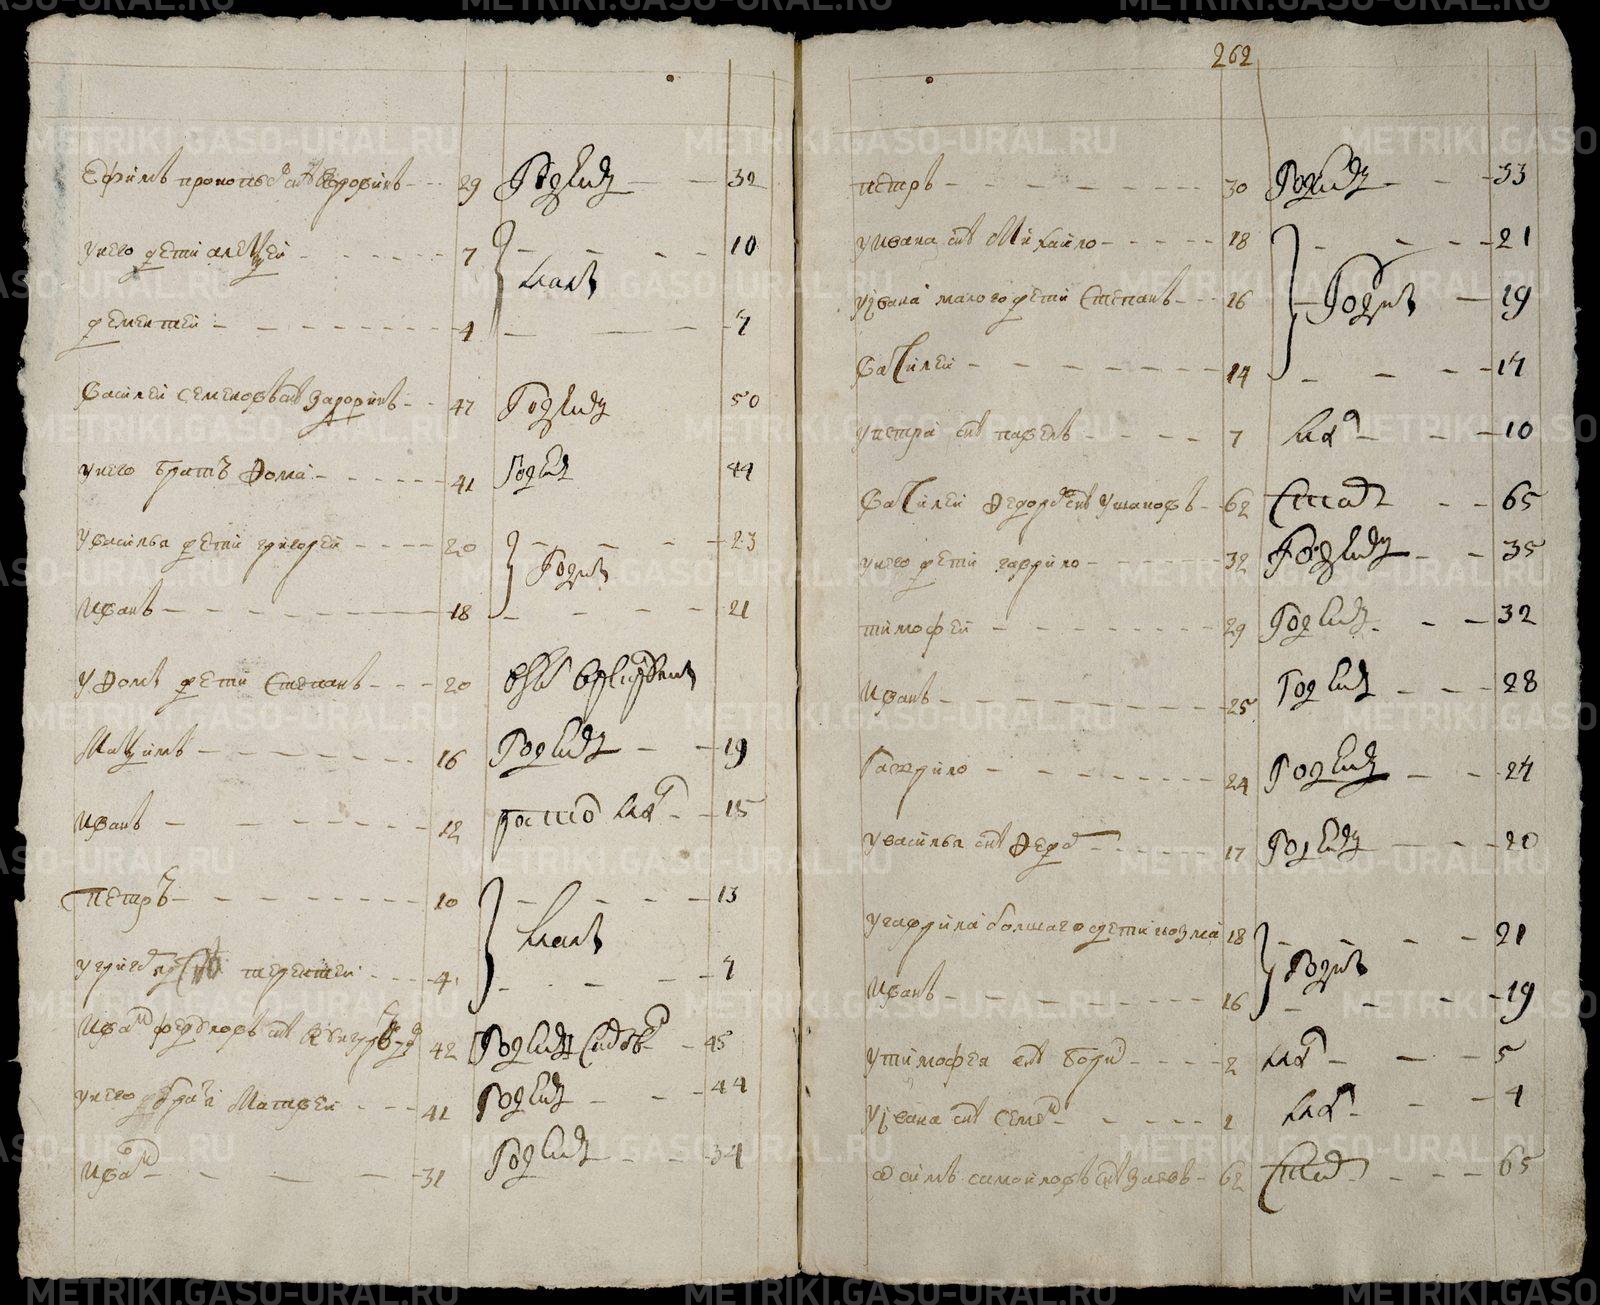 Ефимъ прокопьевъ снъ 29 Годенъ 32
у него дети алексей 7 10
малъ
дементей 4 7
Василей семеновъ снъ Задоринъ 47 Годенъ 50
у него братъ Фома 41 Годен 44
у василья дети григорей 20 23
Годны
Иванъ 18 21
у Фомы дети Степанъ 20
Максимъ 16 Годенъ 19
Иванъ 12 мал 15
петръ 10 13
малы
терентей 4 7
Иван федоровъ снъ 42 Годен 45
у него братья Матвей 41 Годен 44
Иван 31 Годен 34
262
петръ 30 Годенъ 33
у ивана снъ Михайло 18 21
у ивана малого дети Степанъ 16 Годны 19
Василей 14 17
у петра снъ павелъ 7 мал 10
Василей Федоровъ снъ Ушаковъ 62 Стар 65
у него дети гаврило 32 Годенъ 35
тимофей 29 Годен 32
Иванъ 25 Годен 28
Гаврило 24 Годен 27
у василья снъ Федор 17 Годен 20
у гаврила болшаго дети козма 18 21
Годны
Иванъ 16 19
у тимофея снъ борис 2 мал 5
у ивана снъ семен 1 мал 4
самойловъ снъ 62 Стар 65
METRIKI.GASO-URAL.RU